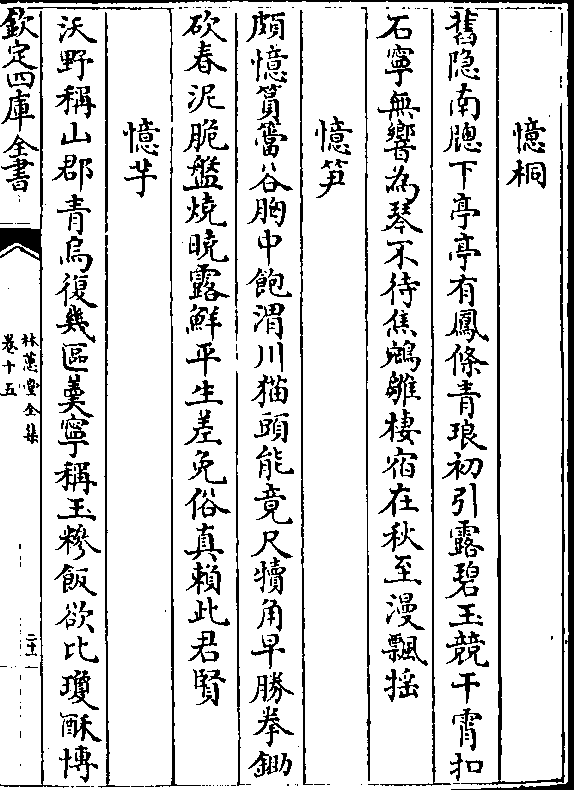 憶桐
舊隐南牕下亭亭有鳳條青琅初引露碧玉競干霄扣
石寧無響為琴不待焦鵷雛棲宿在秋至漫飄揺
憶笋
頗憶篔簹谷胸中飽渭川猫頭能竟尺犢角早勝拳鋤
砍春泥脆盤燒曉露鮮平生差免俗真賴此君賢
憶芋
沃野稱山郡青烏復幾區羹寧稱玉糝飯欲比瓊酥慱
欽定四庫全書
林蕙堂全集
卷十五